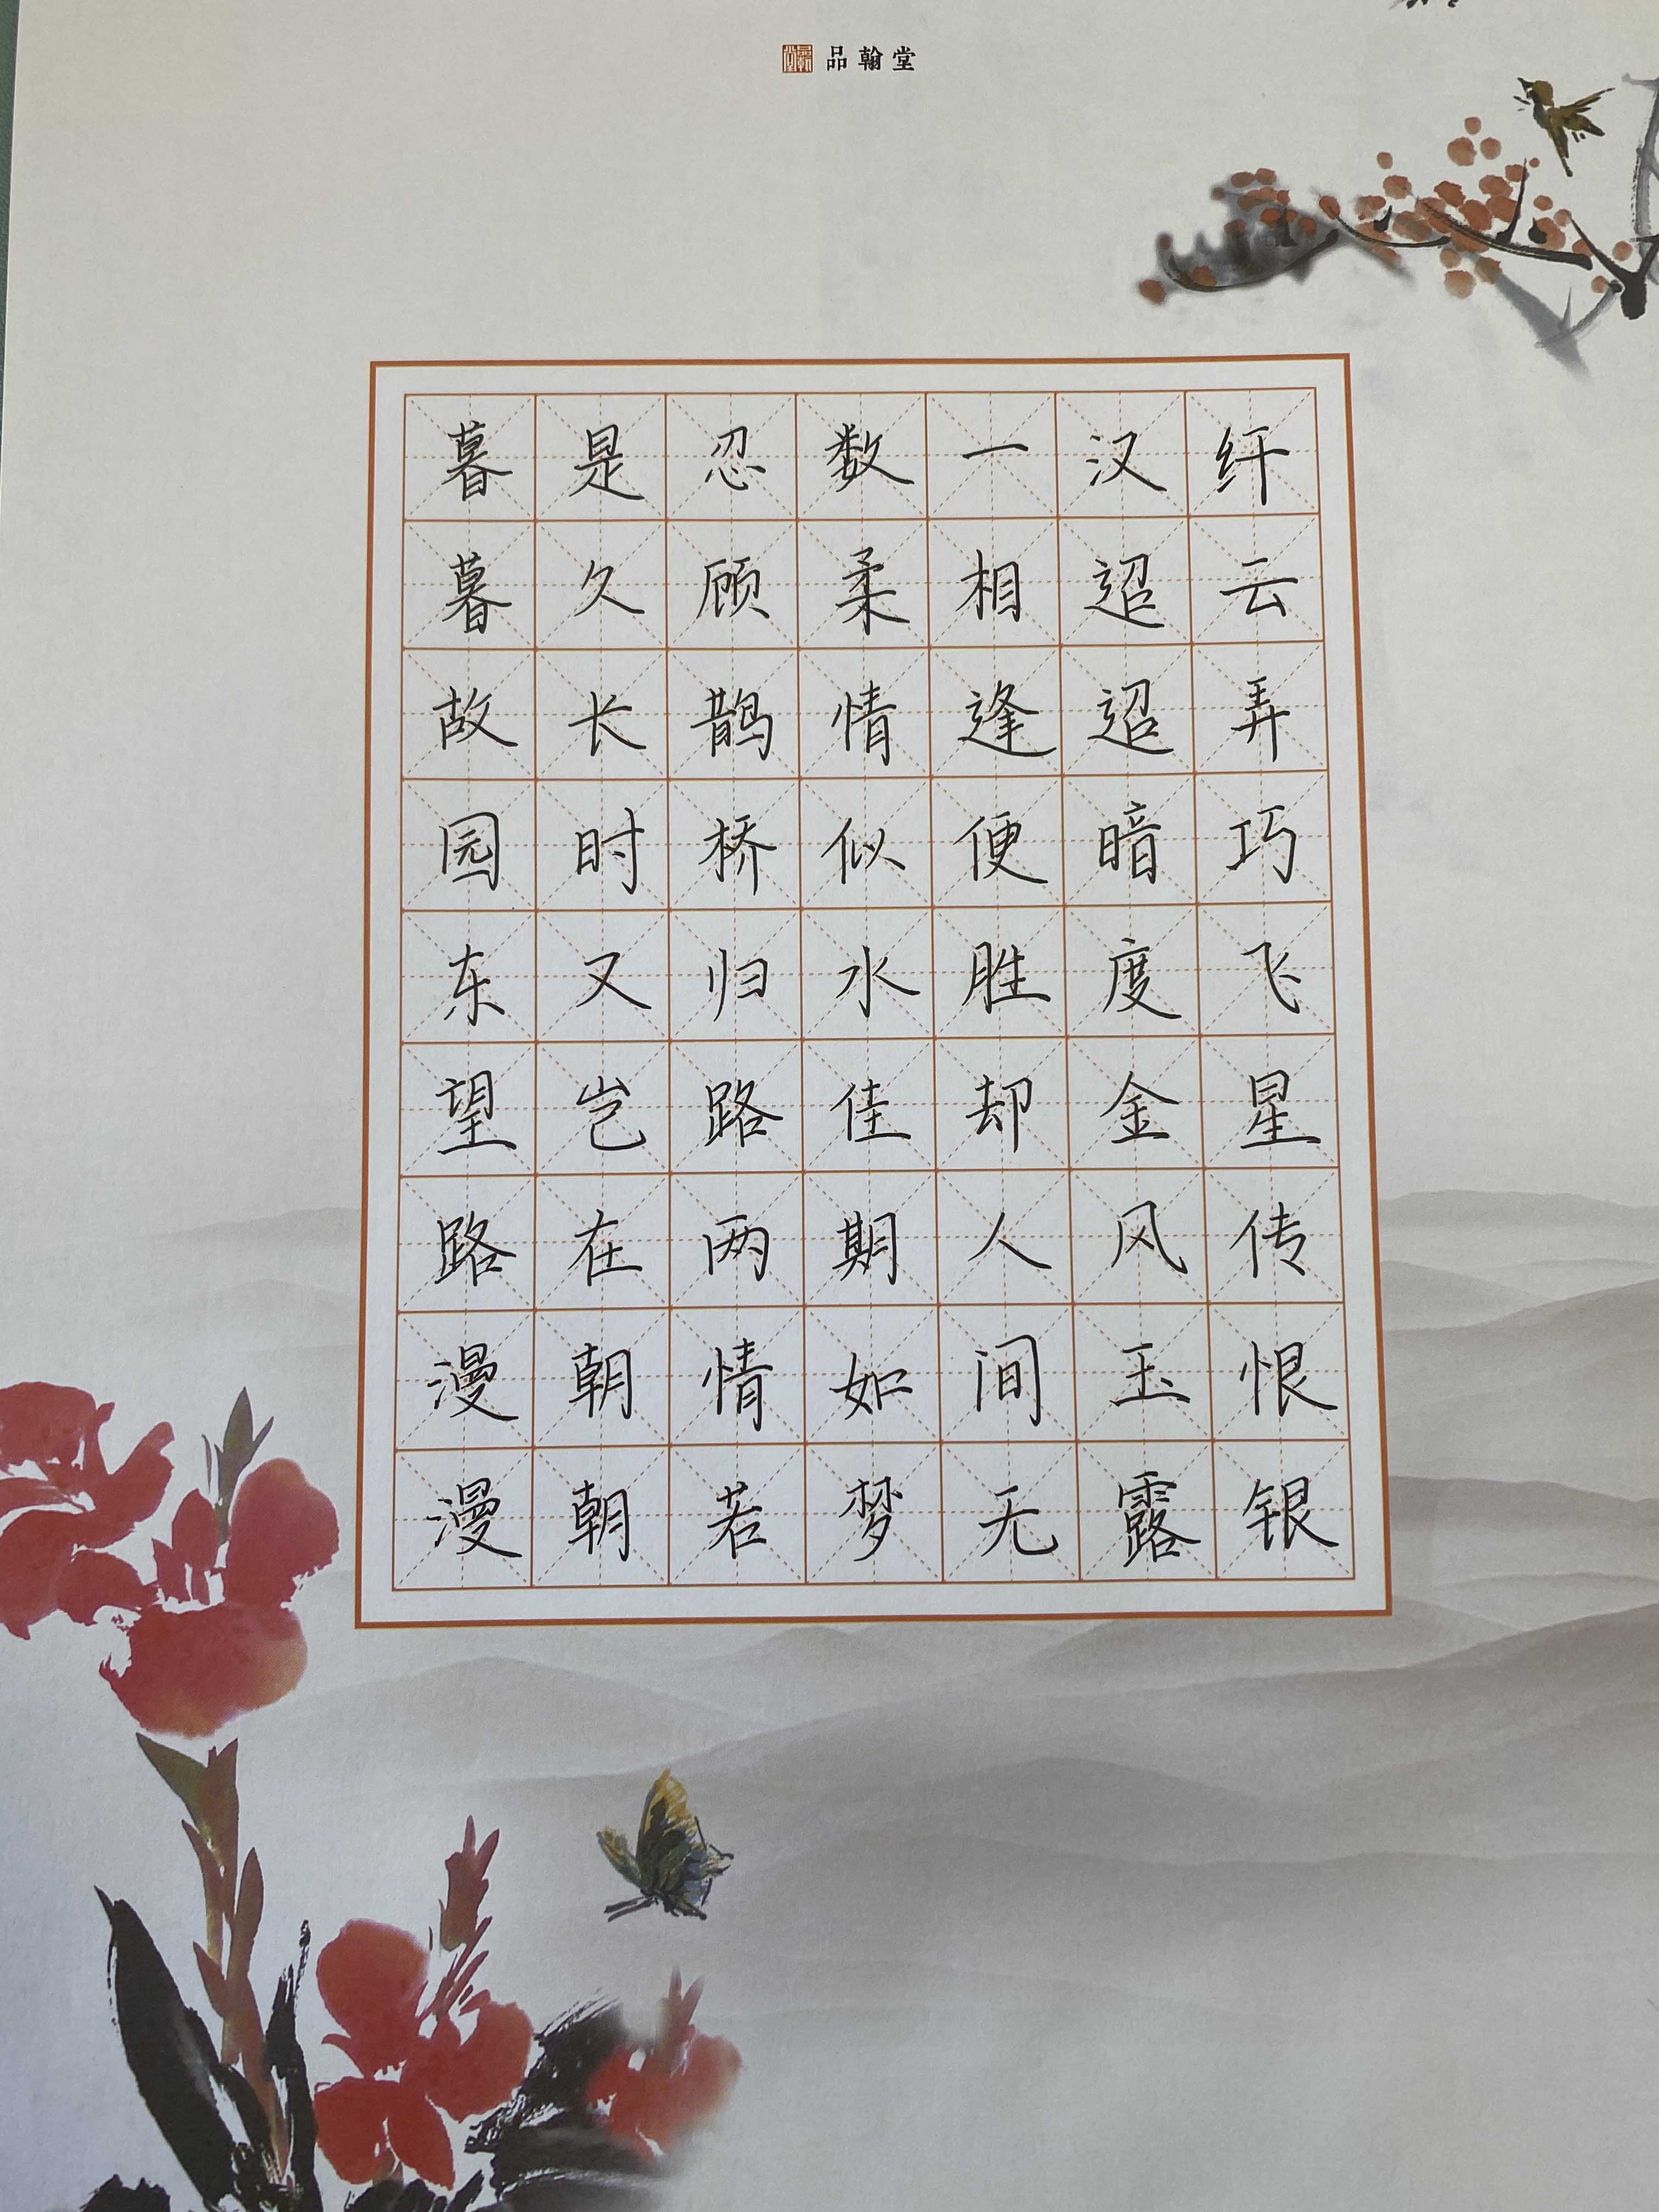 品翰堂
纤云弄巧飞星传恨银
汉迢迢暗度金风玉露
一相逢便胜却人间无
数柔情似水佳期如梦
忍顾鹊桥归路两情若
是久长时又岂在朝朝
暮暮故园东望路漫漫